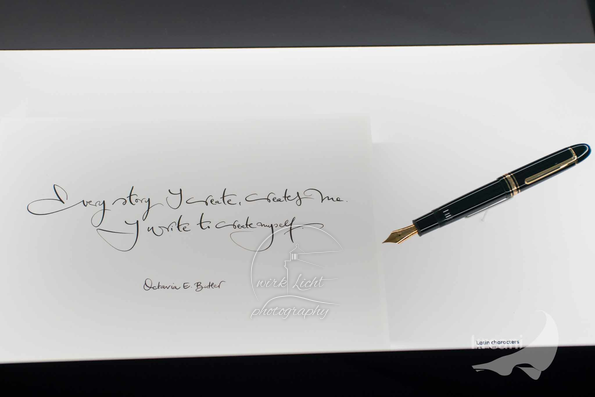 Every story I create, creates me.
I write to create myself
Octavia E. Butler
work Licht
photography
Latin characters